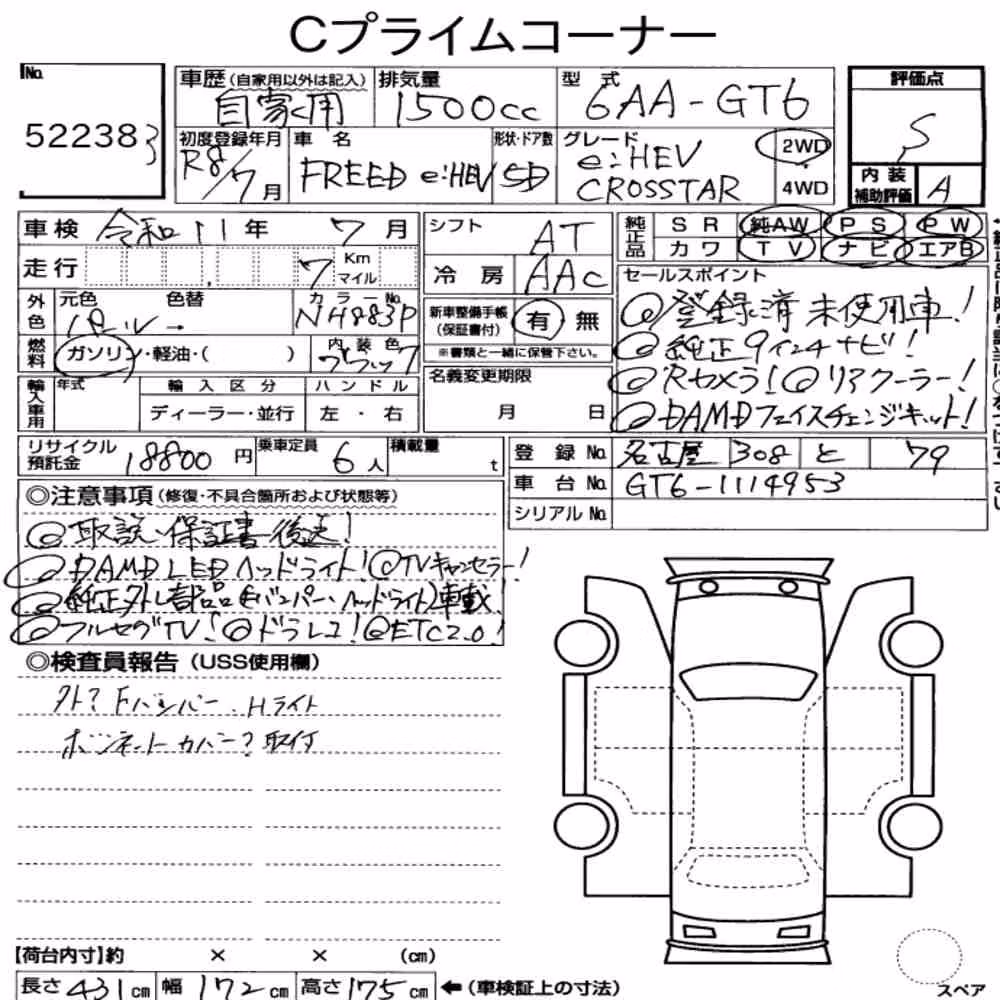 Cプライムコーナー
No.
52238
車歴(自家用以外は記入) 排気量 型式 評価点
自家用 1500cc 6AA-GT6 S
初度登録年月 車名 形状・ドア数 グレード 2WD
R8/7月 FREED e:HEV 5D e:HEV CROSSTAR 4WD
内装補助評価 A
車検 令和11年 7月 シフト AT
純正品 SR 純AW PS PW
カワ TV ナビ エアB
走行 7 Km マイル 冷房 AAC
セールスポイント
◎登録済未使用車!
◎純正9インチナビ!
◎Rカメラ!◎リアクーラー!
◎DAMDフェイスチェンジキット!
外色 元色 色替 カラーNo.
パール → NH883P
新車整備手帳(保証書付) 有 無
※書類と一緒に保管下さい。
燃料 ガソリン・軽油・( ) 内装色 ブラック
名義変更期限 月 日
輸入車用 年式 輸入区分 ハンドル
ディーラー・並行 左・右
リサイクル預託金 18800円 乗車定員 6人 積載量 t
登録No. 名古屋 308 と 79
車台No. GT6-1114953
シリアルNo.
◎注意事項(修復・不具合箇所および状態等)
◎取説・保証書後送!
◎DAMD LEDヘッドライト!◎TVキャンセラー!
◎純正外し部品(Fバンパー、ヘッドライト)車載
◎フルセグTV!◎ドラレコ!◎ETC2.0!
◎検査員報告(USS使用欄)
Fバンパー、Hライト
ボンネットカバー?取付
【荷台内寸】約 × × (cm)
長さ431cm 幅172cm 高さ175cm ←(車検証上の寸法)
スペア